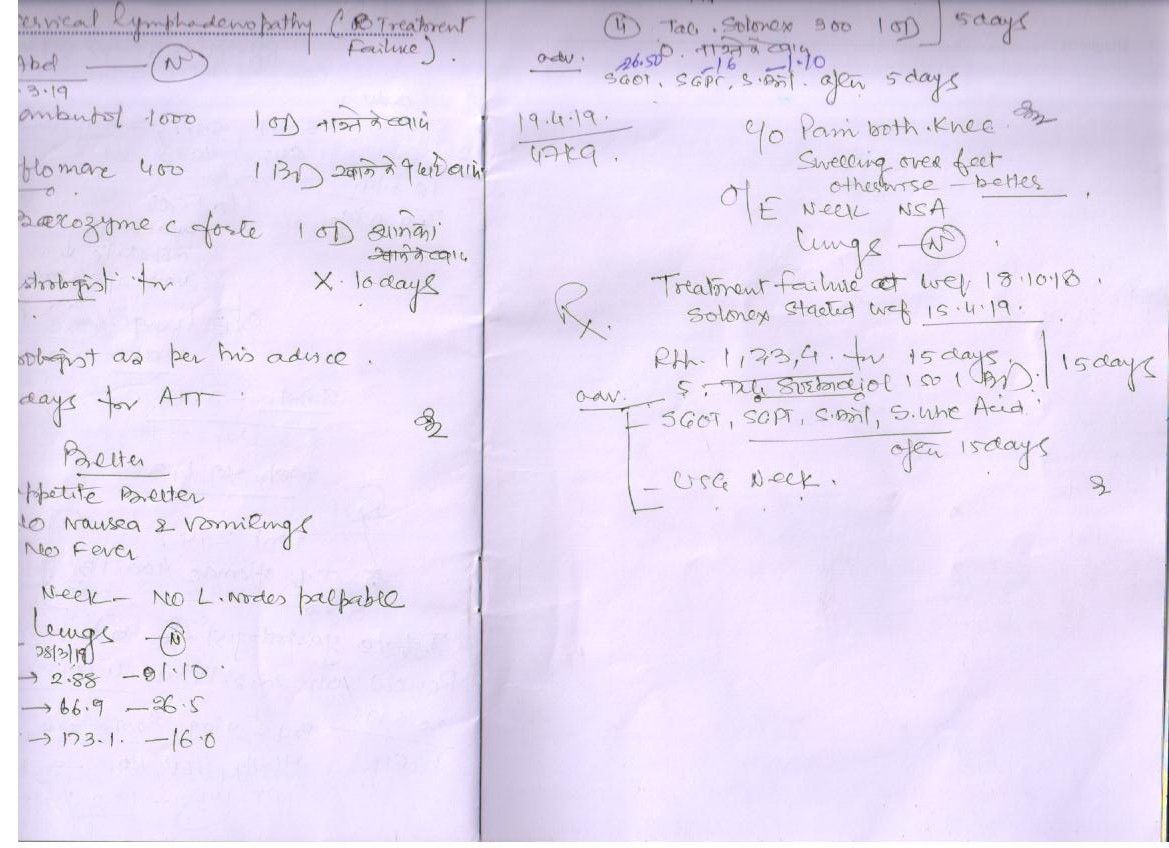 ervical lymphadenopathy ( Treatment
Failure)
Abd — N
3.19
ambutol 1000 1 OD
flomax 400 1 BD
zyme c forte 1 OD
X 10 days
ologist as per his advice.
days for ATT
Better
Appetite Better
No Nausea & Vomitings
No Fever
Neck — NO L. nodes palpable
lungs — N
28/3/19
→ 2.88 — 1.10
→ 66.9 — 26.5
→ 173.1. — 16.0
④ Tab. Solonex 300 1 OD ] 5 days
26.50 —16 —1.10
adv. SGOT, SGPT, S. Bil. after 5 days
19.4.19.
47Kg.
c/o Pain both Knee
Swelling over feet
otherwise — better
O/E Neck NSA
lungs — N
Treatment failure wef 18.10.18.
Rx.
Solonex started wef 15.4.19.
Rt. 1, 2, 3, 4. for 15 days
15 days
5. Tab 150 1 BD
adv.
— SGOT, SGPT, S. Bil, S. Uric Acid
after 15 days
— USG Neck.